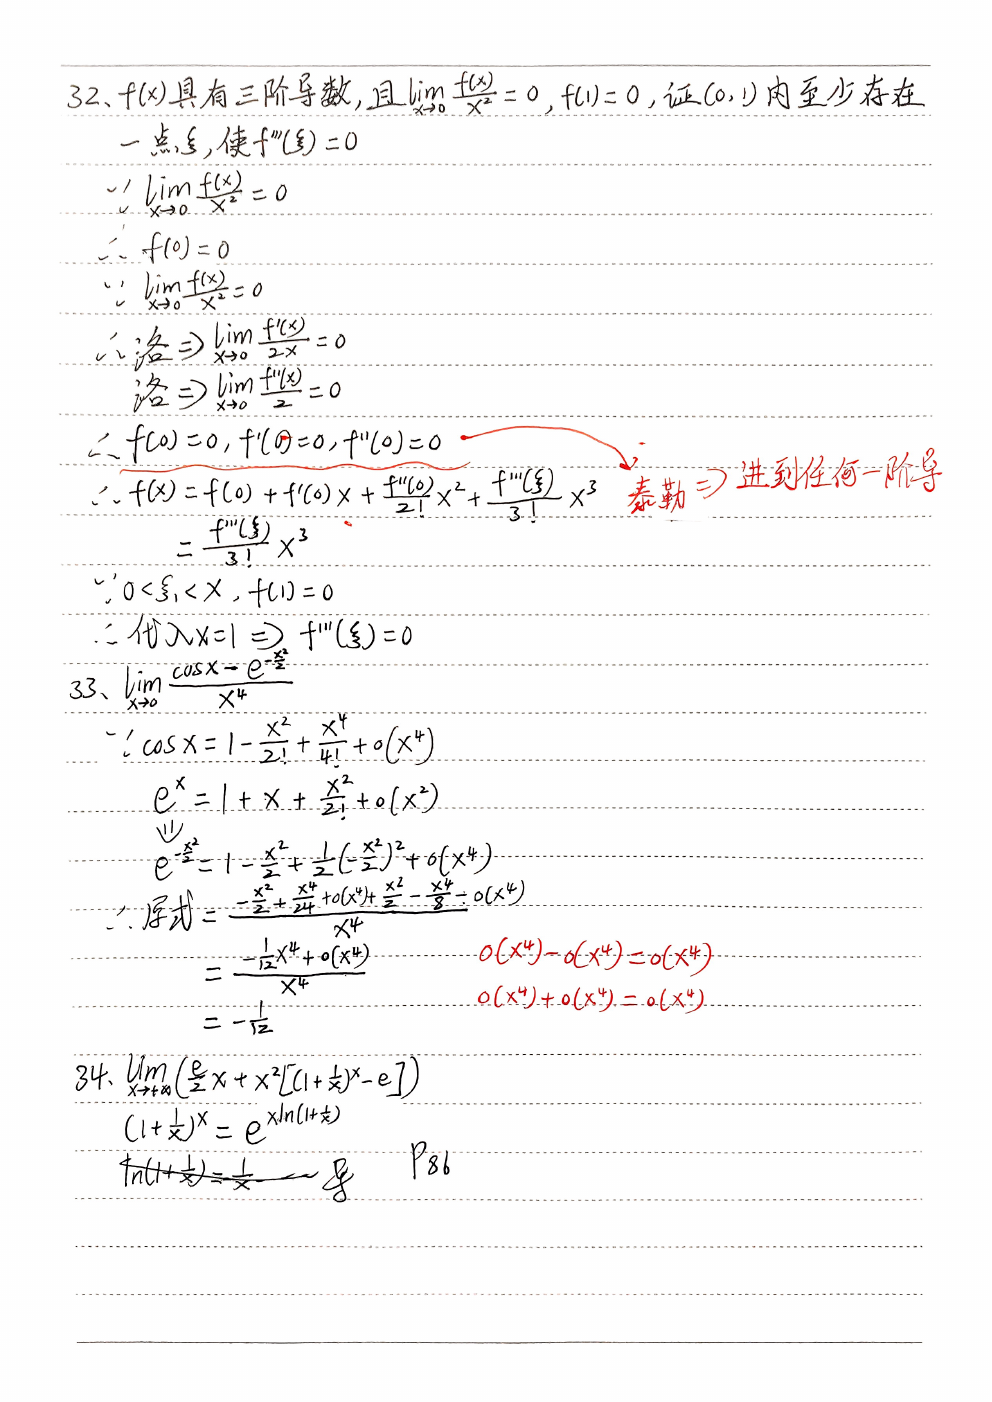 32、f(x)具有三阶导数,且lim x→0 f(x)/x² = 0, f(1)=0,证(0,1)内至少存在
一点ξ,使f'''(ξ)=0
∵ lim x→0 f(x)/x² = 0
∴ f(0)=0
∵ lim x→0 f(x)/x² = 0
∴ 洛 ⇒ lim x→0 f'(x)/2x = 0
洛 ⇒ lim x→0 f''(x)/2 = 0
∴ f(0)=0, f'(0)=0, f''(0)=0
泰勒 ⇒ 进到任何一阶导
∴ f(x) = f(0) + f'(0)x + f''(0)/2! x² + f'''(ξ)/3! x³
= f'''(ξ)/3! x³
∵ 0<ξ<x, f(1)=0
∴ 代入x=1 ⇒ f'''(ξ)=0
33、lim x→0 (cosx - e^(-x²/2))/x⁴
∵ cosx = 1 - x²/2! + x⁴/4! + o(x⁴)
e^x = 1 + x + x²/2! + o(x²)
⇓
e^(-x²/2) = 1 - x²/2 + 1/2(-x²/2)² + o(x⁴)
∴ 原式 = (-x²/2 + x⁴/24 + o(x⁴) + x²/2 - x⁴/8 - o(x⁴))/x⁴
= (-1/12 x⁴ + o(x⁴))/x⁴
o(x⁴) - o(x⁴) = o(x⁴)
o(x⁴) + o(x⁴) = o(x⁴)
= -1/12
34、lim x→+∞ (e/2 x + x²[(1+1/x)^x - e])
(1+1/x)^x = e^(xln(1+1/x))
ln(1+1/x) = 1/x
P86